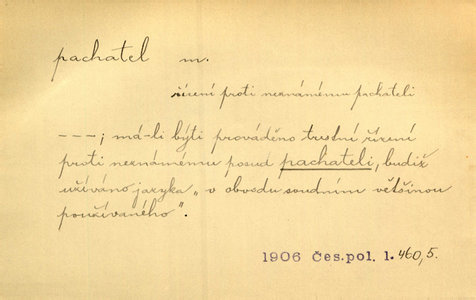 pachatel m.
řízení proti neznámému pachateli
---; má-li býti prováděno trestní řízení
proti neznámému posud pachateli, budiž
užíváno jazyka „v obvodu soudním většinou
používaného“.
1906 Čes.pol. 1. 460,5.